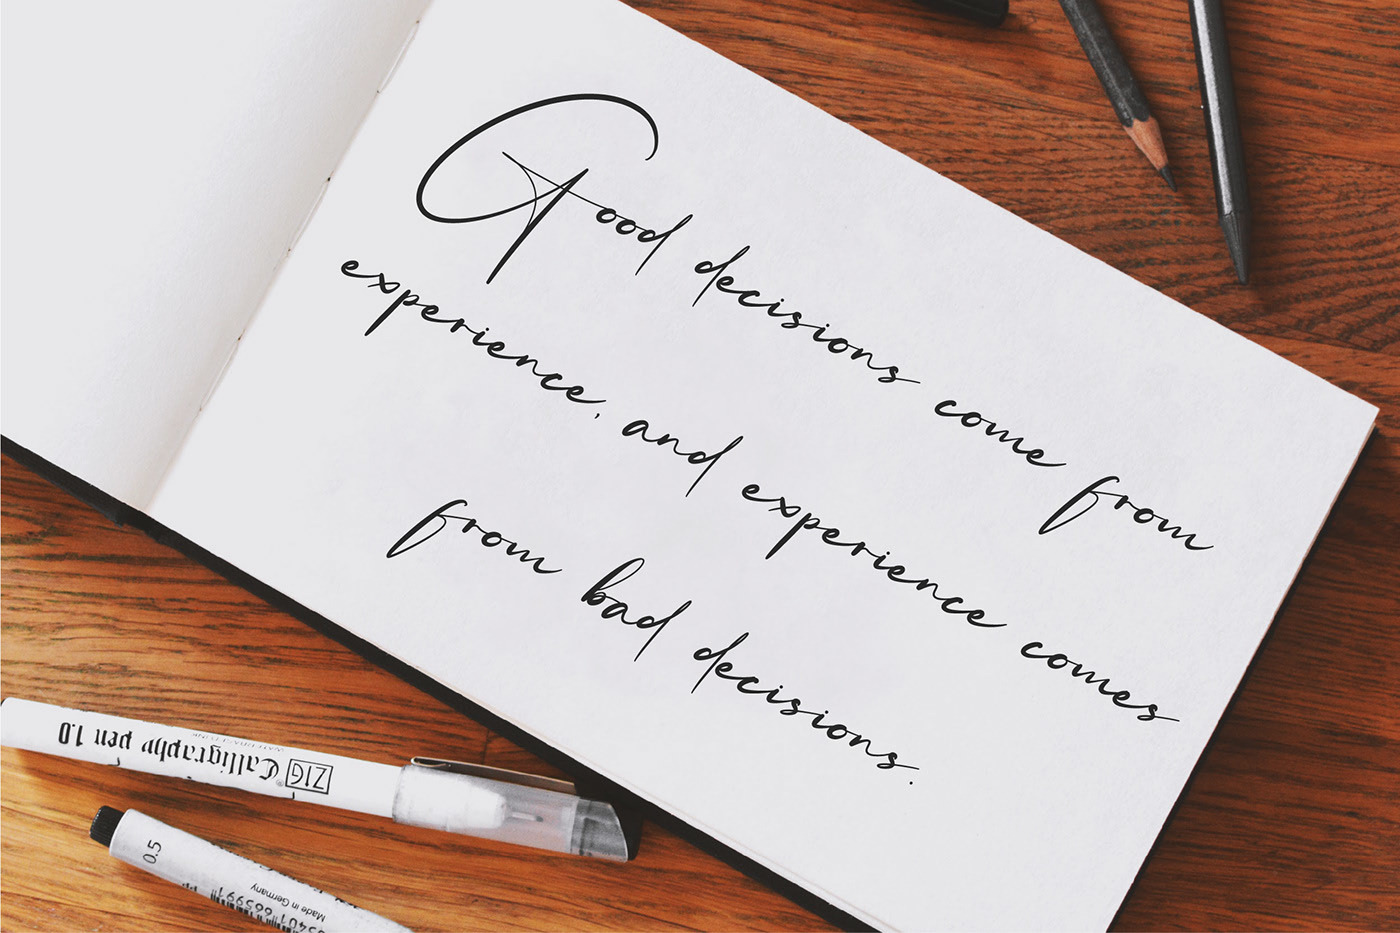 Good decisions come from
experience, and experience comes
from bad decisions.
ZIG Calligraphy pen 1.0
0.5
Made in Germany